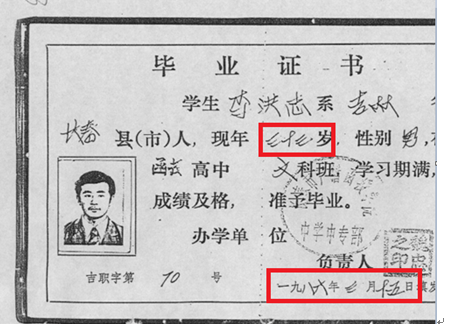 毕业证书
学生 李洪志 系 吉林
长春 县(市)人，现年 三十三 岁，性别 男，
高中 文科班，学习期满，
成绩及格，准予毕业。
中学中专部
办学单位
负责人
吉职字第 70 号
一九八六年三月十五日填发